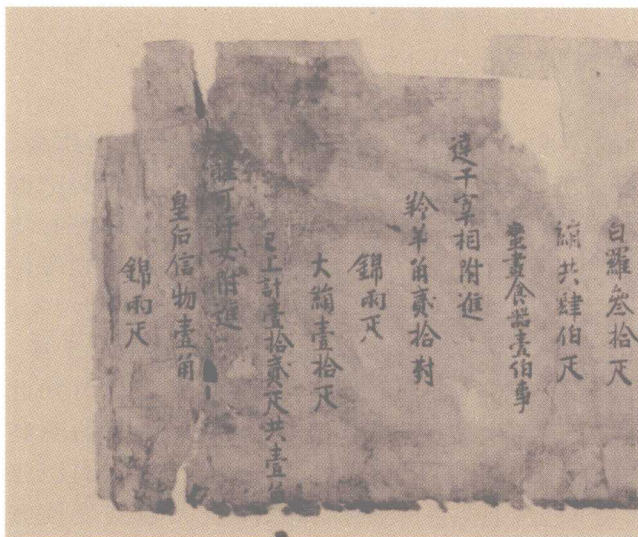 白羅叁拾疋
絹共肆伯疋
畫食器壹伯事
達干宰相附進
羚羊角貳拾對
錦兩疋
大絹壹拾疋
已上計壹拾貳疋共壹角
可汗女附進
皇后信物壹角
錦兩疋